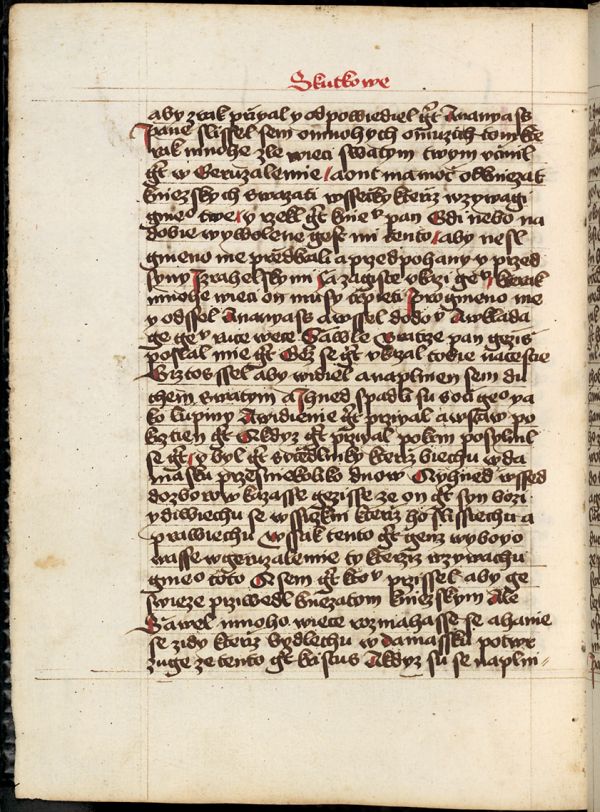 Skutkowe
aby zrak przyal y odpowiediel gt Ananyass
Pane slissel sem omnohych omuzich tomkte
rak mnohe zle wieci swatym twym vcinil
gt w Geruzalemie / aont ma moc odkniezat
kniezskych swazati wssetky kteriz wzywagi
gmeo twe / y rzekl gt knieu pan Gdi nebo na
dobie wywolene gest mi tento / aby nesl
gmeno me przedkrali a przed pohany y przed
syny Izrahelskymi / Ja zagiste vkazi geu kterak
mnohe wieci on musy trpieti progmeno me
y odssel Ananyass awssel dodomu Awklada
ge geu ruce wece Sawle Bratrze pan gezis
poslal mie gt Genz se gt vkazal tobie naceste
Giztos ssel aby widiel anaplnien sem du
chem swatym a Ihned spadli su sociu geo ya
ko lupiny A widienie gt przyal awstaw po
krztien gt A kdyz gt przyal pokrm posylnil
se gt / y byl gt svczedlniky kteriz biechu wda
masku przesniekoliko dnow A yhned wssed
dozborow kazasse gezisse ze on gt syn bozi
y diwiechu se wssiczkni kteriz ho slissiechu a
prawiechu wssak tento gt genz wyboyo
wasse wgeruzalemie ty kteriz wzywachu
gmeo toto A sem gt ktou przissel aby ge
swieze przwedl kniezatom kniezskym Ale
Sawel mnoho wiece rozmahasse se ahanie
se zidy kteriz bydlechu w damassku potwr
zuge ze tento gt kristus A kdyz su se naplni